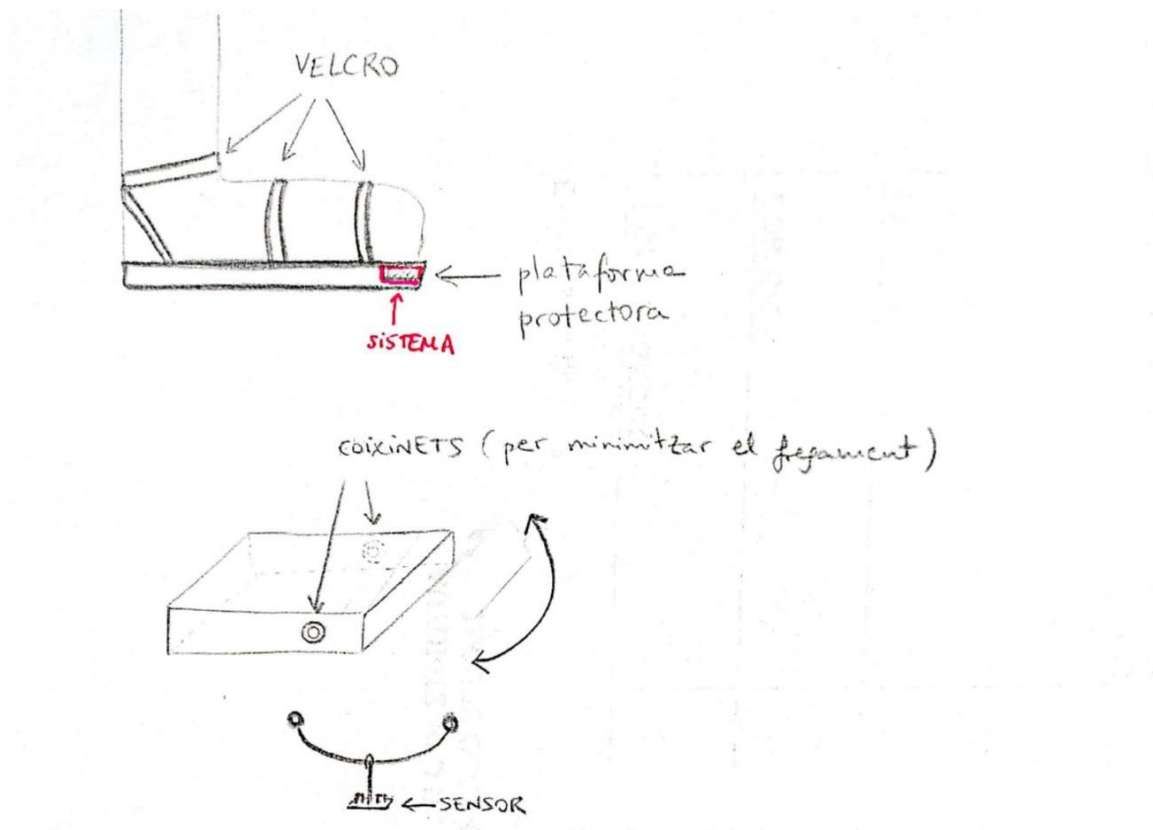 VELCRO
plataforma
protectora
SiSTEMA
COiXiNETS (per minimitzar el fregament)
SENSOR